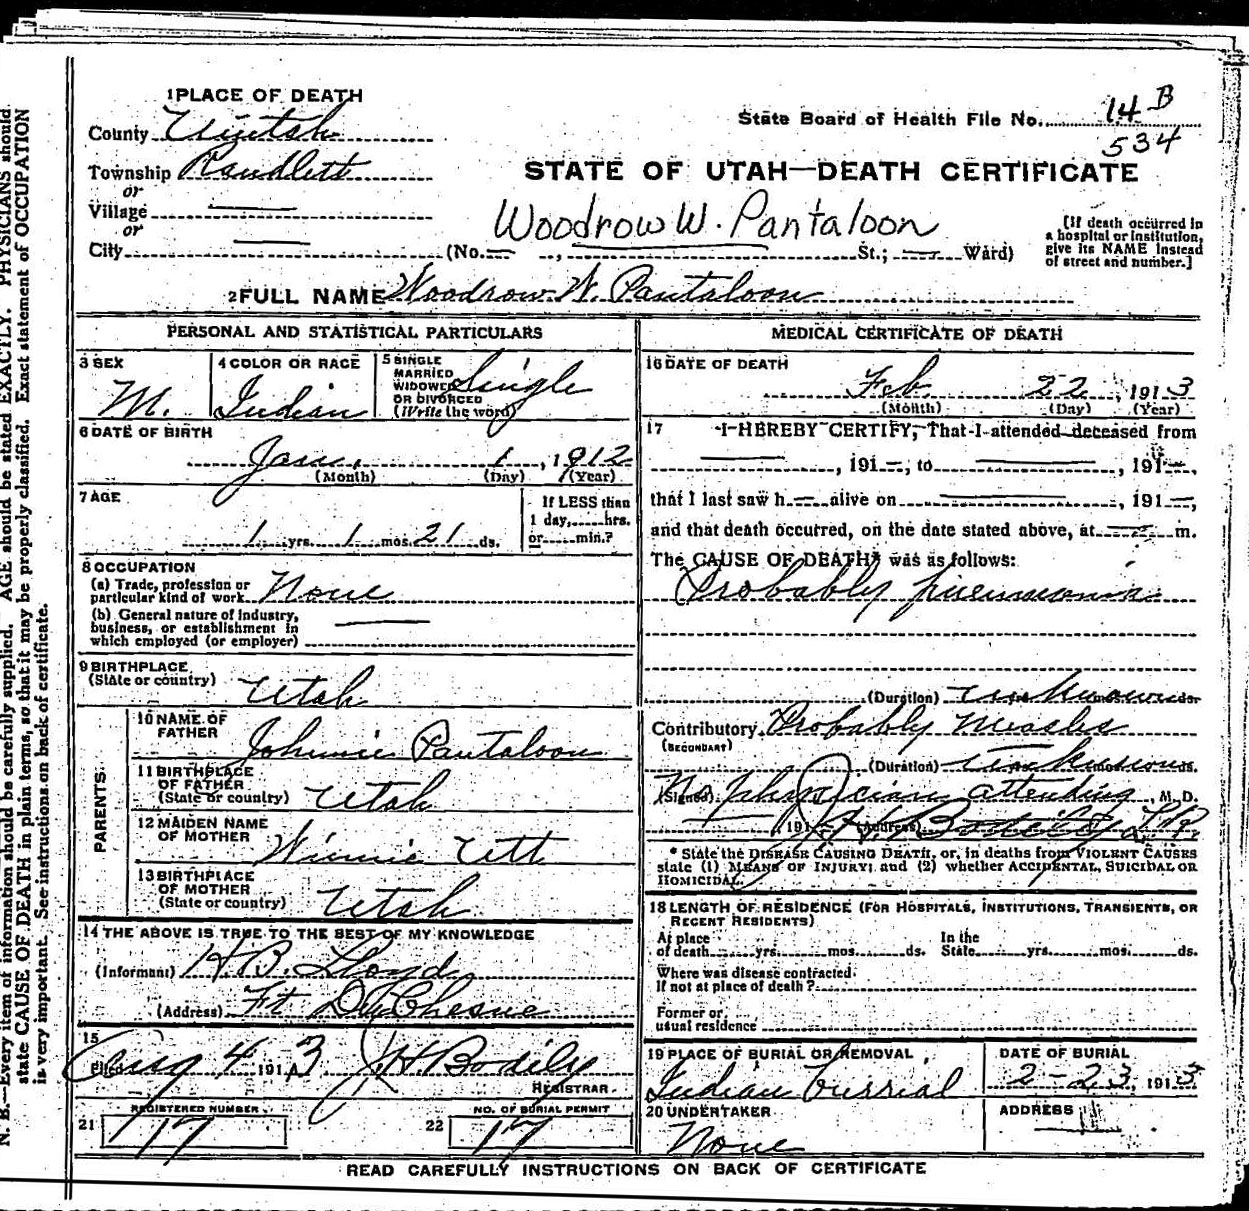 N. B.—Every item of information should be carefully supplied. AGE should be stated EXACTLY. PHYSICIANS should
state CAUSE OF DEATH in plain terms, so that it may be properly classified. Exact statement of OCCUPATION
is very important. See instructions on back of certificate.
1 PLACE OF DEATH
County Uintah
Township Randlett
or
Village
or
City
State Board of Health File No. 14 B
534
STATE OF UTAH—DEATH CERTIFICATE
Woodrow W. Pantaloon
(No. — , St.; — Ward)
[If death occurred in
a hospital or institution,
give its NAME instead
of street and number.]
2 FULL NAME Woodrow W. Pantaloon
PERSONAL AND STATISTICAL PARTICULARS
3 SEX
M.
4 COLOR OR RACE
Indian
5 SINGLE
MARRIED
WIDOWED
OR DIVORCED
(Write the word)
Single
6 DATE OF BIRTH
Jan. 1, 1912
(Month) (Day) (Year)
7 AGE
1 yrs. 1 mos. 21 ds.
If LESS than
1 day,.....hrs.
or.....min.?
8 OCCUPATION
(a) Trade, profession or
particular kind of work None
(b) General nature of industry,
business, or establishment in
which employed (or employer)
9 BIRTHPLACE
(State or country) Utah
PARENTS
10 NAME OF
FATHER Johnnie Pantaloon
11 BIRTHPLACE
OF FATHER
(State or country) Utah
12 MAIDEN NAME
OF MOTHER Winnie Utt
13 BIRTHPLACE
OF MOTHER
(State or country) Utah
14 THE ABOVE IS TRUE TO THE BEST OF MY KNOWLEDGE
(Informant) H. B. Lloyd
(Address) Ft DuChesne
15
Filed Aug 4 1913 J H Bodily
REGISTRAR
21 REGISTERED NUMBER 17
22 NO. OF BURIAL PERMIT 17
MEDICAL CERTIFICATE OF DEATH
16 DATE OF DEATH
Feb. 22, 1913
(Month) (Day) (Year)
17 I HEREBY CERTIFY, That I attended deceased from
—, 191—, to —, 191—,
that I last saw h— alive on —, 191—,
and that death occurred, on the date stated above, at — m.
The CAUSE OF DEATH* was as follows:
Probably pneumonia
(Duration) unknown ds.
Contributory Probably Measles
(SECONDARY)
(Duration) unknown ds.
(Signed) No physician attending, M. D.
—, 191 (Address) J. H. Bodily L.R.
* State the DISEASE CAUSING DEATH, or, in deaths from VIOLENT CAUSES
state (1) MEANS OF INJURY; and (2) whether ACCIDENTAL, SUICIDAL OR
HOMICIDAL.
18 LENGTH OF RESIDENCE (FOR HOSPITALS, INSTITUTIONS, TRANSIENTS, OR
RECENT RESIDENTS)
At place
of death.....yrs.....mos.....ds.
In the
State.....yrs.....mos.....ds.
Where was disease contracted.
If not at place of death?
Former or
usual residence
19 PLACE OF BURIAL OR REMOVAL
Indian burrial
DATE OF BURIAL
2-23 1913
20 UNDERTAKER
None
ADDRESS
READ CAREFULLY INSTRUCTIONS ON BACK OF CERTIFICATE